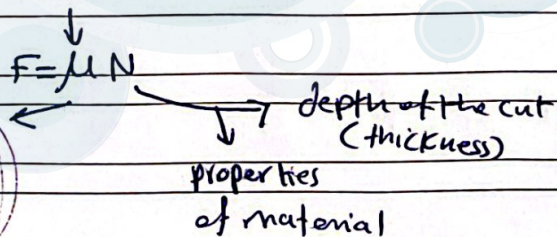 F=μN
depth of the cut
(thickness)
properties
of material